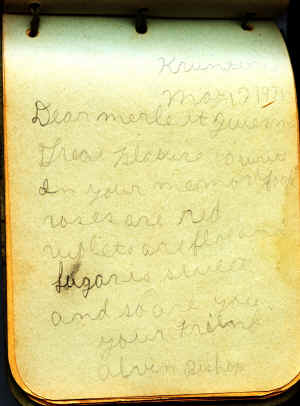 Krum
May 12 192
Dear merle it gives m
Grea Plasure to write
In your memory book
roses are red
vieflets are
sugar is sweet
and so are you.
your Frienk
Alven Bishop